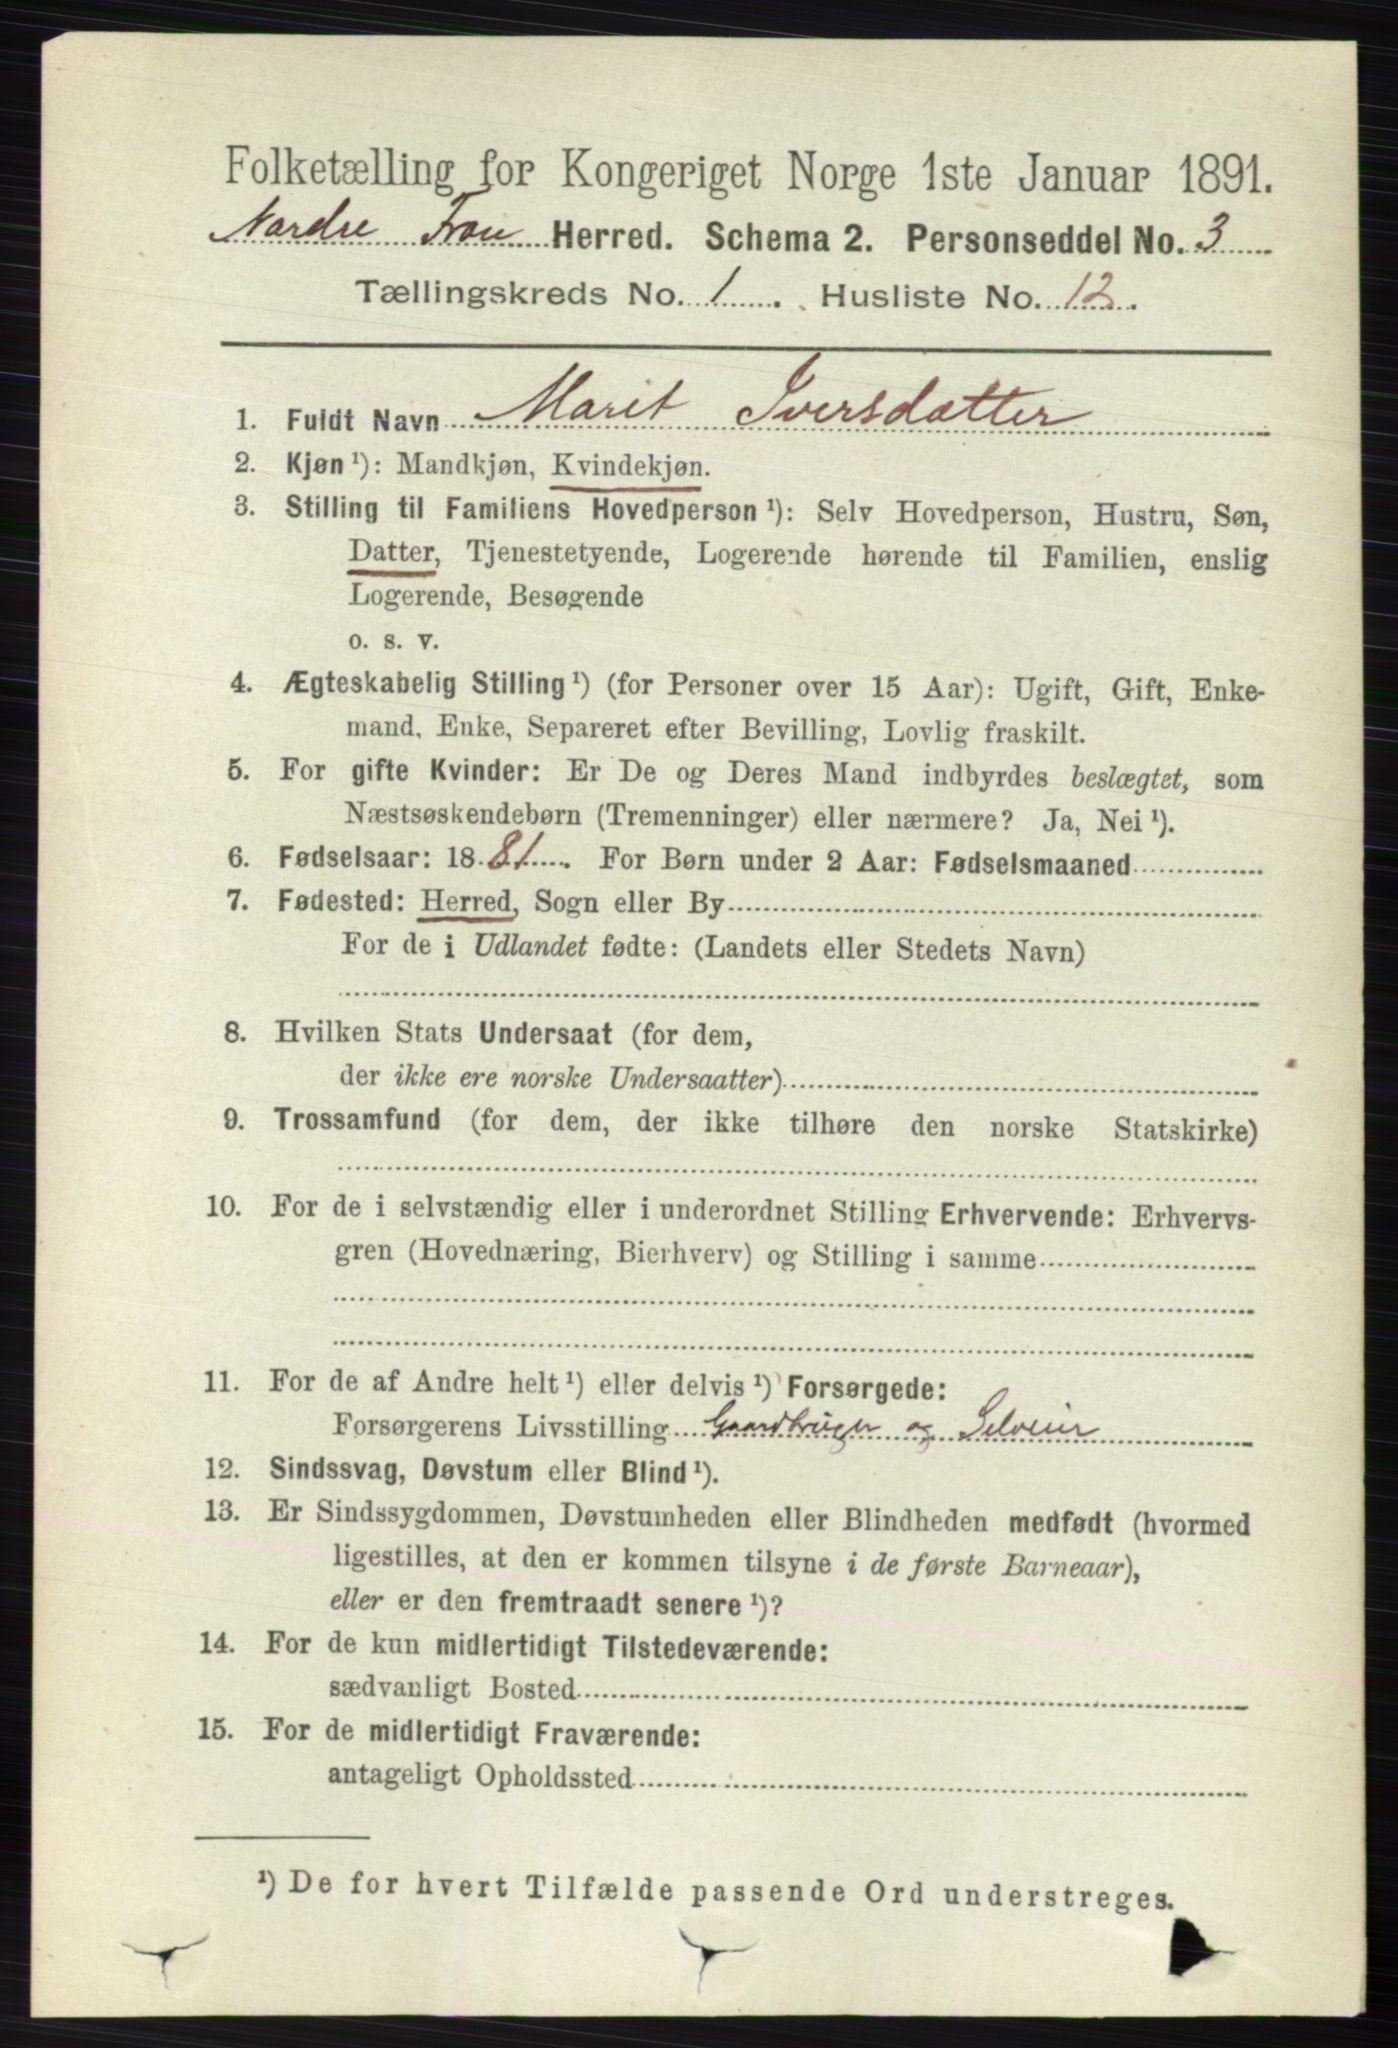 Folketælling for Kongeriget Norge 1ste Januar 1891.
Nordre Fron Herred. Schema 2. Personseddel No. 3
Tællingskreds No. 1. Husliste No. 12.
1. Fuldt Navn Marit Iversdatter
2. Kjøn ¹): Mandkjøn, Kvindekjøn.
3. Stilling til Familiens Hovedperson ¹): Selv Hovedperson, Hustru, Søn,
Datter, Tjenestetyende, Logerende hørende til Familien, enslig
Logerende, Besøgende
o. s. v.
4. Ægteskabelig Stilling ¹) (for Personer over 15 Aar): Ugift, Gift, Enke-
mand, Enke, Separeret efter Bevilling, Lovlig fraskilt.
5. For gifte Kvinder: Er De og Deres Mand indbyrdes beslægtet, som
Næstsøskendebørn (Tremenninger) eller nærmere? Ja, Nei ¹).
6. Fødselsaar: 1881. For Børn under 2 Aar: Fødselsmaaned
7. Fødested: Herred, Sogn eller By
For de i Udlandet fødte: (Landets eller Stedets Navn)
8. Hvilken Stats Undersaat (for dem,
der ikke ere norske Undersaatter)
9. Trossamfund (for dem, der ikke tilhøre den norske Statskirke)
10. For de i selvstændig eller i underordnet Stilling Erhvervende: Erhvervs-
gren (Hovednæring, Bierhverv) og Stilling i samme
11. For de af Andre helt ¹) eller delvis ¹) Forsørgede:
Forsørgerens Livsstilling Gaardbruger og Selveier
12. Sindssvag, Døvstum eller Blind ¹).
13. Er Sindssygdommen, Døvstumheden eller Blindheden medfødt (hvormed
ligestilles, at den er kommen tilsyne i de første Barneaar),
eller er den fremtraadt senere ¹)?
14. For de kun midlertidigt Tilstedeværende:
sædvanligt Bosted
15. For de midlertidigt Fraværende:
antageligt Opholdssted
¹) De for hvert Tilfælde passende Ord understreges.